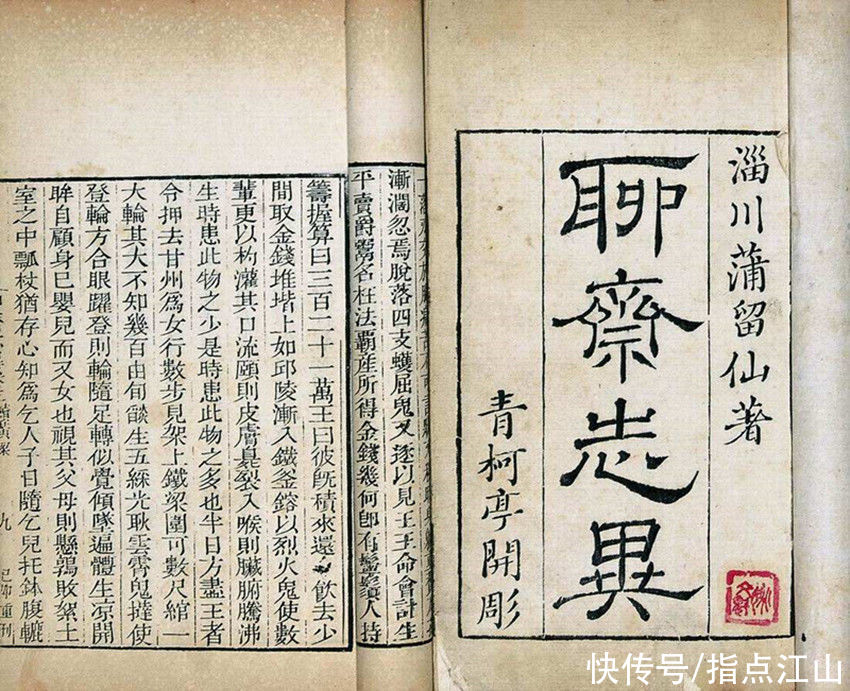 淄川蒲留仙著
聊齋志異
青柯亭開彫
漸濶忽焉脫落四支蠖屈鬼又逐以見王王命會計生
平賣爵鬻名枉法霸産所得金錢幾何卽有鬈鬚人持
籌握算曰三百二十一萬王曰彼旣積來還飲去少
間取金錢堆堦上如邱陵漸入鐵釜鎔以烈火鬼使數
輩更以杓灌其口流頤則皮膚臭裂入喉則臟腑騰沸
生時患此物之少是時患此物之多也半日方盡王者
令押去甘州爲女行數步見架上鐵梁圍可數尺綰一
大輪其大不知幾百由旬燄生五綵光耿雲霄鬼撻使
登輪方合眼躍登則輪隨足轉似覺傾墜遍體生凉開
眸自顧身已嬰兒而又女也視其父母則懸鶉敗絮土
室之中瓢杖猶存心知爲乞人子日隨乞兒托鉢腹轆
九
快传号/指点江山